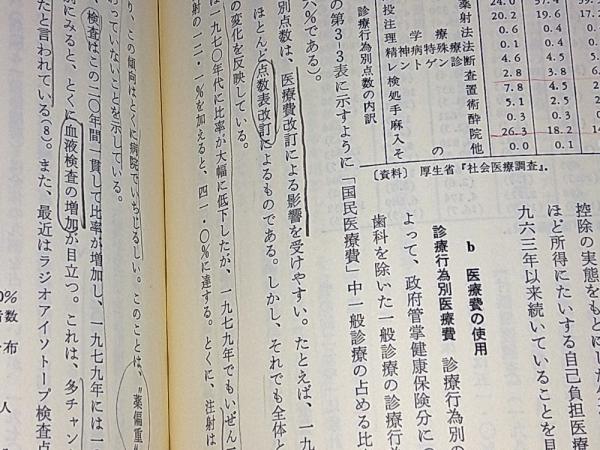 控除の実態をもとにした
ほど所得にたいする自己負担医療
九六三年以来続いていることを見
b 医療費の使用
診療行為別医療費 診療行為別の
よって、政府管掌健康保険分につ
歯科を除いた一般診療の診療行為
の第3-3表に示すように「国民医療費」中一般診療の占める比
診療行為別点数の内訳
24.0 37.
20.2 19.6 17.
0.6 0.4
0.1 0.1
4.6 4.5
2.8 3.8 6.
7.8 4.5
5.1 2.5
0.6 0.3
26.3 18.2 14
〔資料〕 厚生省『社会医療調査』。
六%である。
別点数は、医療費改訂による影響を受けやすい。たとえば、一九
ほとんど点数表改訂によるものである。しかし、それでも全体と
の変化を反映している。
は一九七〇年代に比率が大幅に低下したが、一九七九年でもいぜん一
射の一二・一%を加えると、四一・〇%に達する。とくに、注射は
り、この傾向はとくに病院でいちじるしい。このことは、〝薬偏重〟
わっていないことを示している。
検査はこの二〇年間一貫して比率が増加し、一九七九年には一
にみると、とくに血液検査の増加が目立つ。これは、多チャン
たと言われている(8)。また、最近はラジオアイソトープ検査点
0%
数
布
人